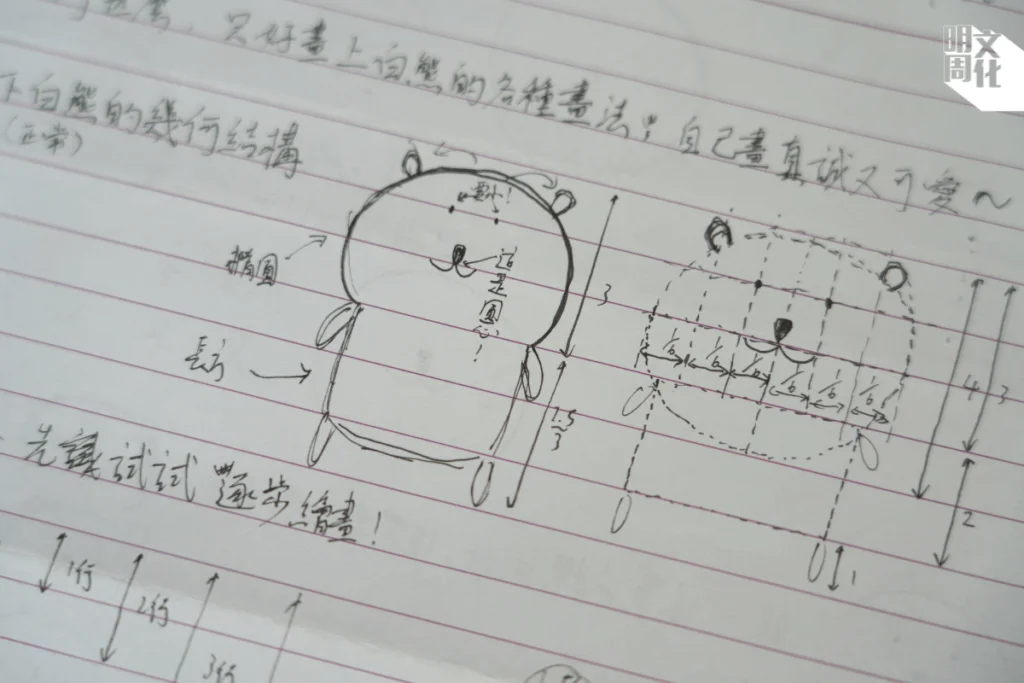 明周文化
只好畫上白熊的各種畫法!自己畫真誠又可愛～
下白熊的幾何結構
(正常)
橢圓
這是圓心!
3
1.5
3
1/6 1/6 1/6 1/6 1/6 1/6
4
3
2
1
先試試逐步繪畫!
1行
2行
3行